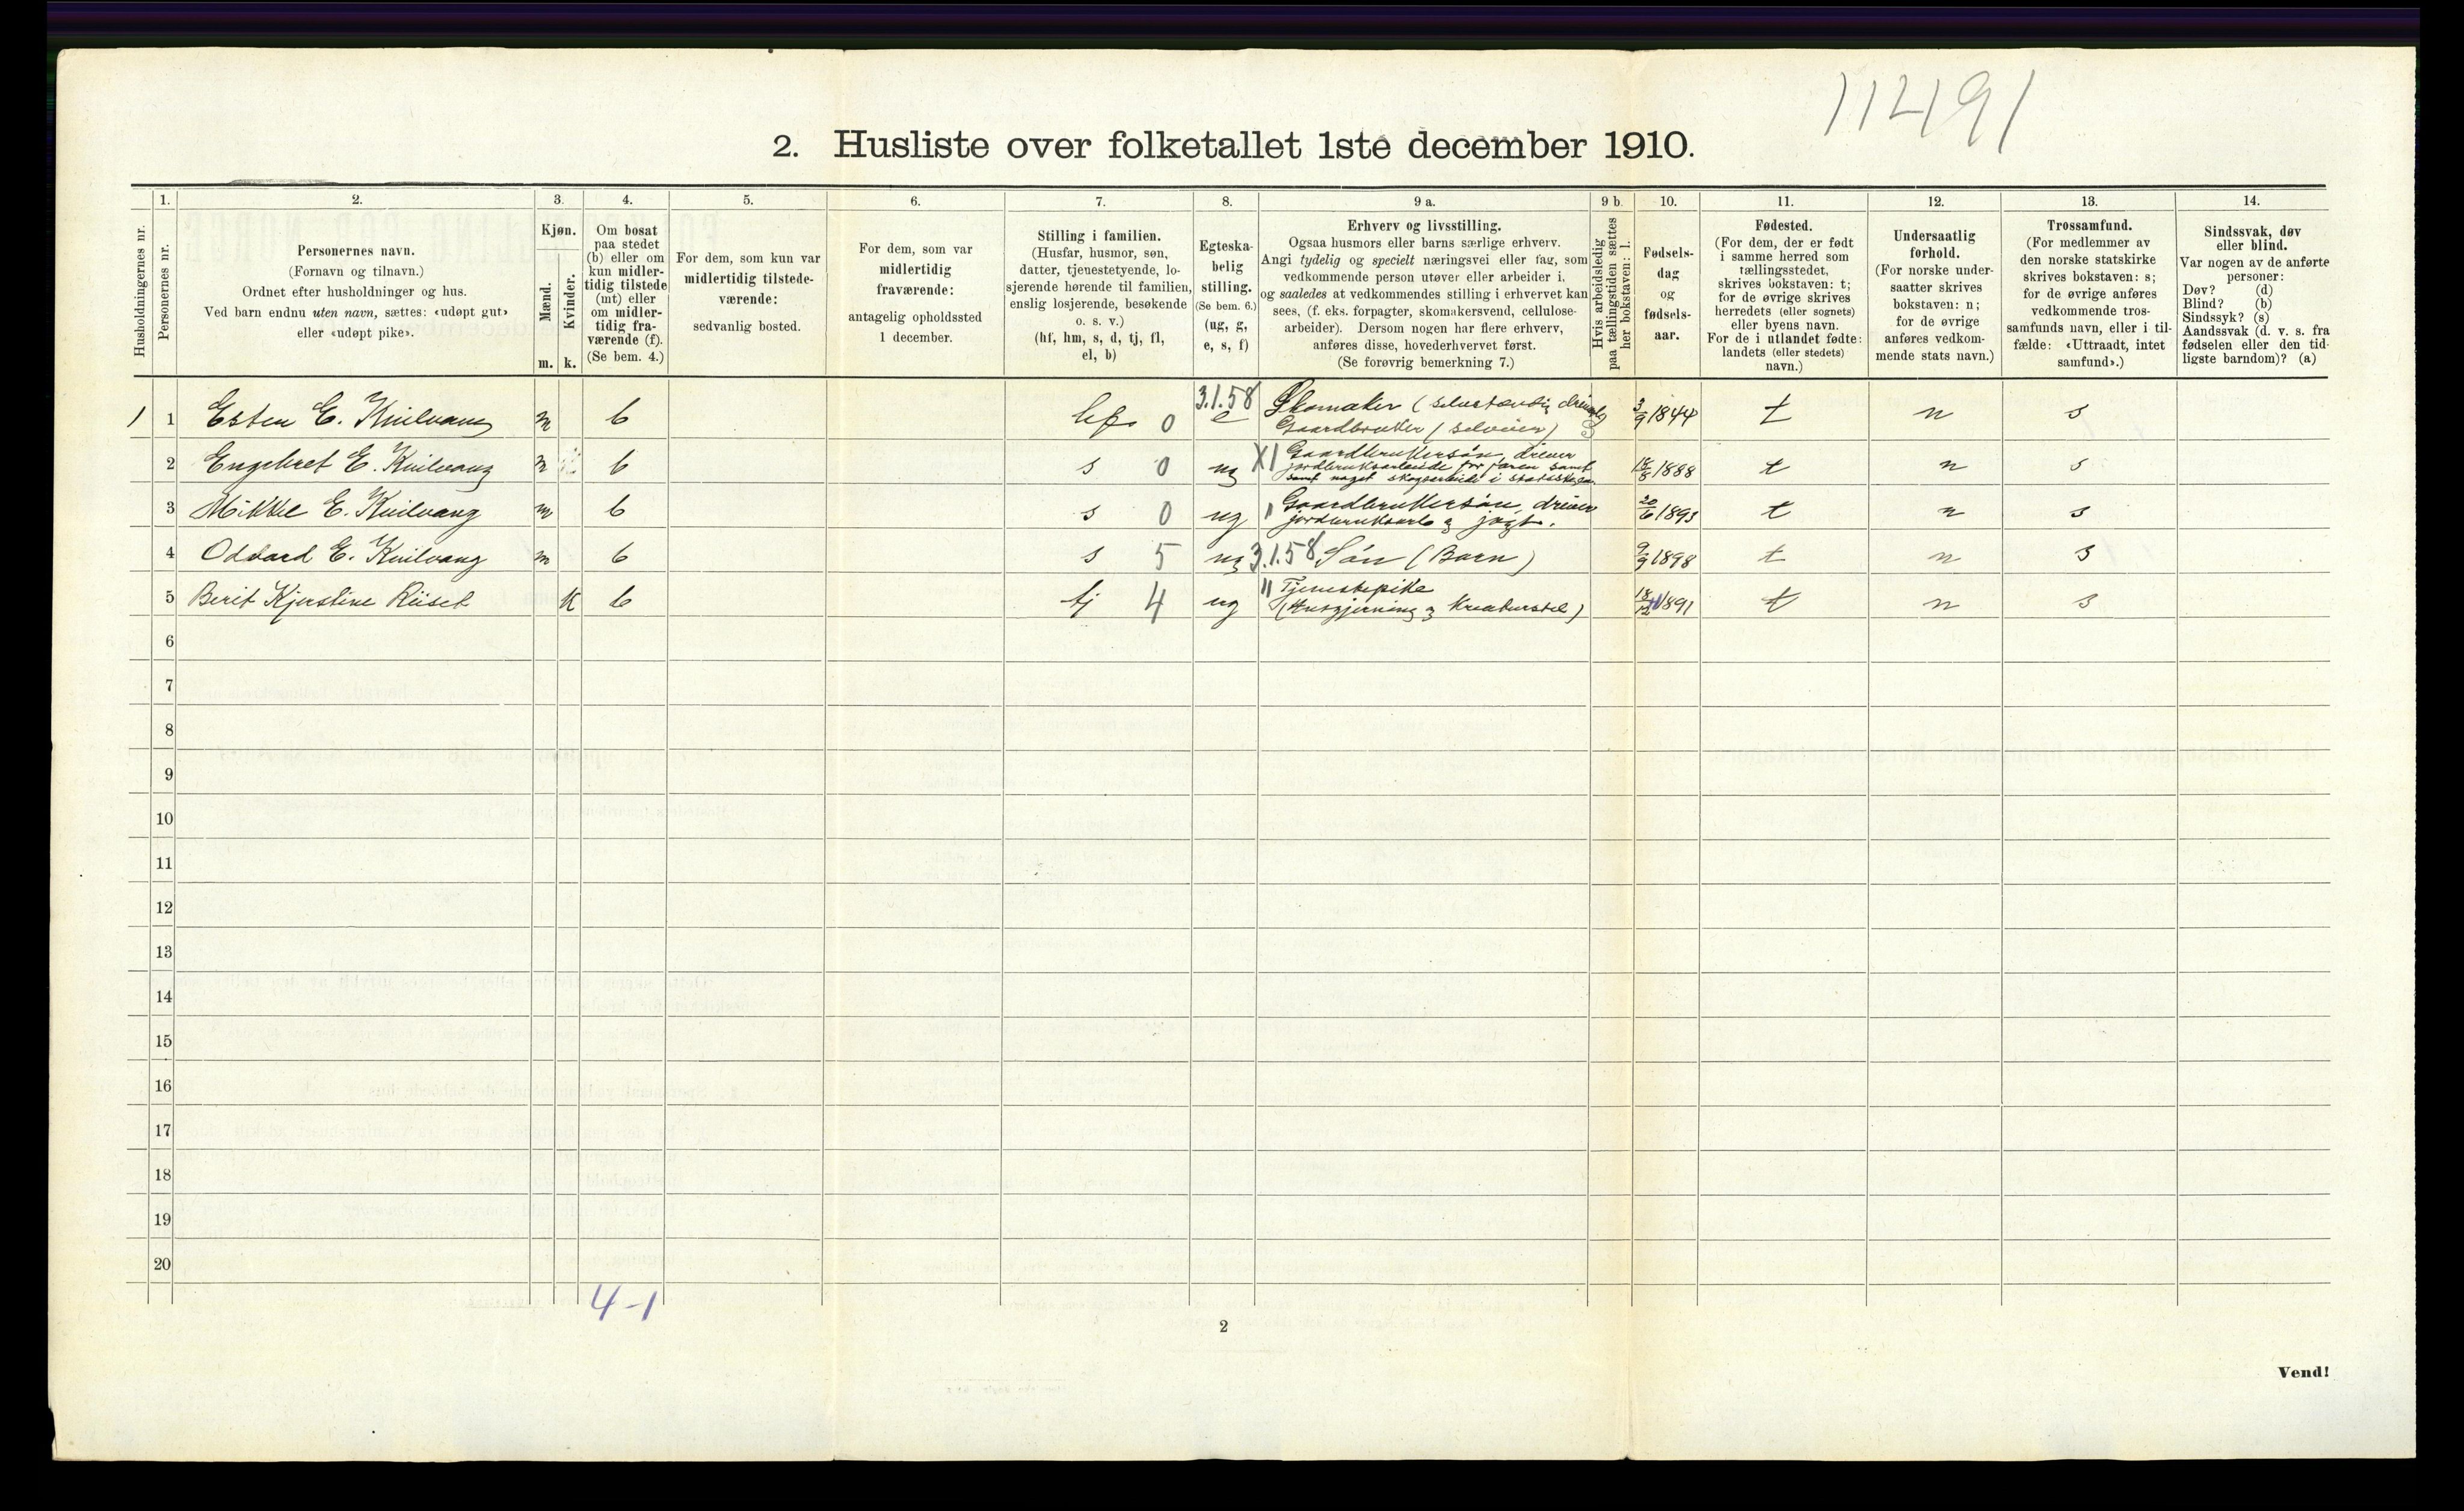 11491
2. Husliste over folketallet 1ste december 1910.
Husholdningernes nr.
1.
Personernes nr.
2.
Personernes navn.
(Fornavn og tilnavn.)
Ordnet efter husholdninger og hus.
Ved barn endnu uten navn, sættes: «udøpt gut»
eller «udøpt pike».
3.
Kjøn.
Mænd.
Kvinder.
m. k.
4.
Om bosat
paa stedet
(b) eller om
kun midler-
tidig tilstede
(mt) eller
om midler-
tidig fra-
værende (f).
(Se bem. 4.)
5.
For dem, som kun var
midlertidig tilstede-
værende:
sedvanlig bosted.
6.
For dem, som var
midlertidig
fraværende:
antagelig opholdssted
1 december.
7.
Stilling i familien.
(Husfar, husmor, søn,
datter, tjenestetyende, lo-
sjerende hørende til familien,
enslig losjerende, besøkende
o. s. v.)
(hf, hm, s, d, tj, fl,
el, b)
8.
Egteska-
belig
stilling.
(Se bem. 6.)
(ug, g,
e, s, f)
9 a.
Erhverv og livsstilling.
Ogsaa husmors eller barns særlige erhverv.
Angi tydelig og specielt næringsvei eller fag, som
vedkommende person utøver eller arbeider i,
og saaledes at vedkommendes stilling i erhvervet kan
sees, (f. eks. forpagter, skomakersvend, cellulose-
arbeider). Dersom nogen har flere erhverv,
anføres disse, hovederhvervet først.
(Se forøvrig bemerkning 7.)
9 b.
Hvis arbeidsledig
paa tællingstiden sættes
her bokstaven: l.
10.
Fødsels-
dag
og
fødsels-
aar.
11.
Fødested.
(For dem, der er født
i samme herred som
tællingsstedet,
skrives bokstaven: t;
for de øvrige skrives
herredets (eller sognets)
eller byens navn.
For de i utlandet fødte:
landets (eller stedets)
navn.)
12.
Undersaatlig
forhold.
(For norske under-
saatter skrives
bokstaven: n;
for de øvrige
anføres vedkom-
mende stats navn.)
13.
Trossamfund.
(For medlemmer av
den norske statskirke
skrives bokstaven: s;
for de øvrige anføres
vedkommende tros-
samfunds navn, eller i til-
fælde: «Uttraadt, intet
samfund».)
14.
Sindssvak, døv
eller blind.
Var nogen av de anførte
personer:
Døv? (d)
Blind? (b)
Sindssyk? (s)
Aandssvak (d. v. s. fra
fødselen eller den tid-
ligste barndom)? (a)
1 1 Esten E. Kuilvang m b hf. 0 3.1.58 e Skomaker (selvstændig
Gaardbruker (selveier) 3/9 1844 t n s
2 Engebret E. Kuilvang m b s 0 ug X1 Gaardbrukersøn, driver
jordbruksarbeide for faren samt
samt noget skogsarbeide i 1888 t n s
3 Mikkel E. Kuilvang m b s 0 ug Gaardbrukersøn, driver
jordbruksarb og jagt. t n s
4 Oddvard E. Kuilvang m b s 5 ug 3.1.58 Søn (Barn) 9/9 1898 t n s
5 Berit Kjerstine Riiset k b tj 4 ug Tjenestepike
(Husgjerning og Kreaturstel) 1891 t n s
6
7
8
9
10
11
12
13
14
15
16
17
18
19
20
4-1
2
Vend!